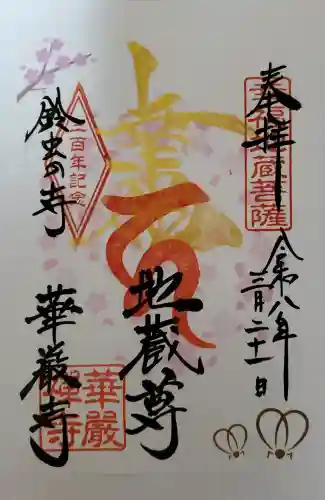 奉拝
令和八年
三月二十一日
地蔵尊
鈴虫の寺
華厳寺
二百年記念
華厳
禅寺